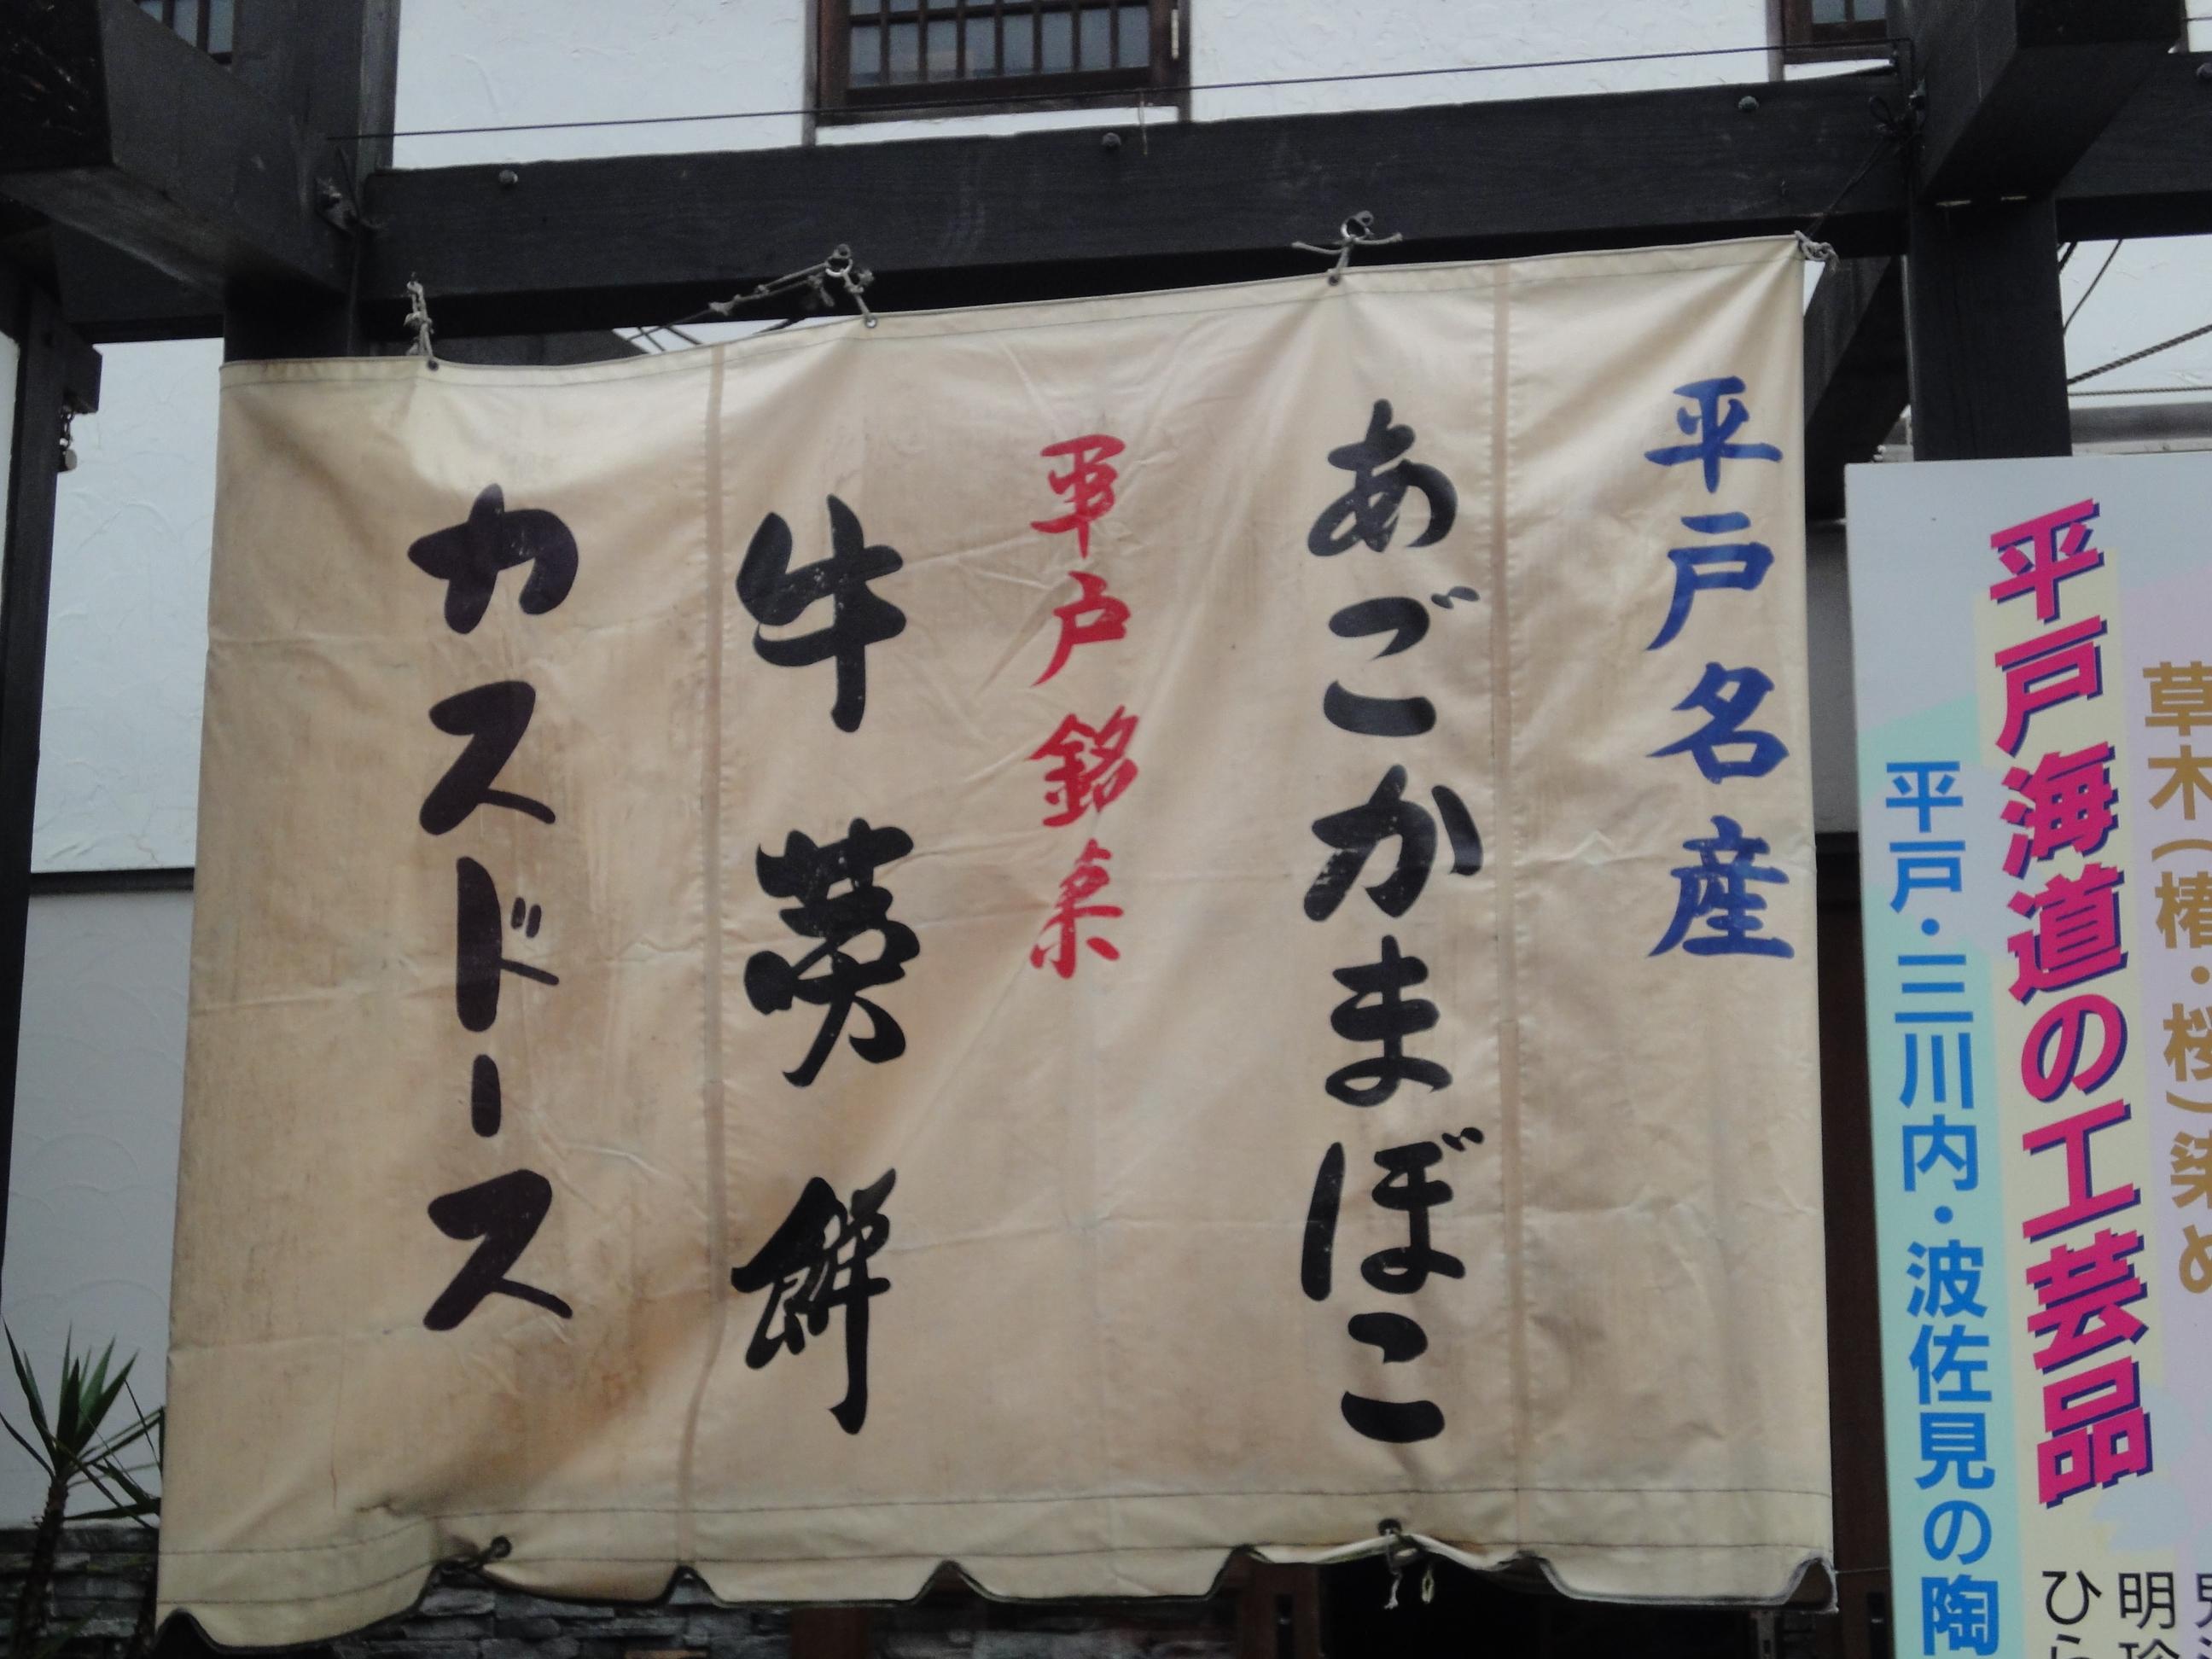 平戸名産
あごかまぼこ
平戸銘菓
牛蒡餅
カスドース
草木(椿・桜)染め
平戸海道の工芸品
平戸・三川内・波佐見の陶
明珍
ひら